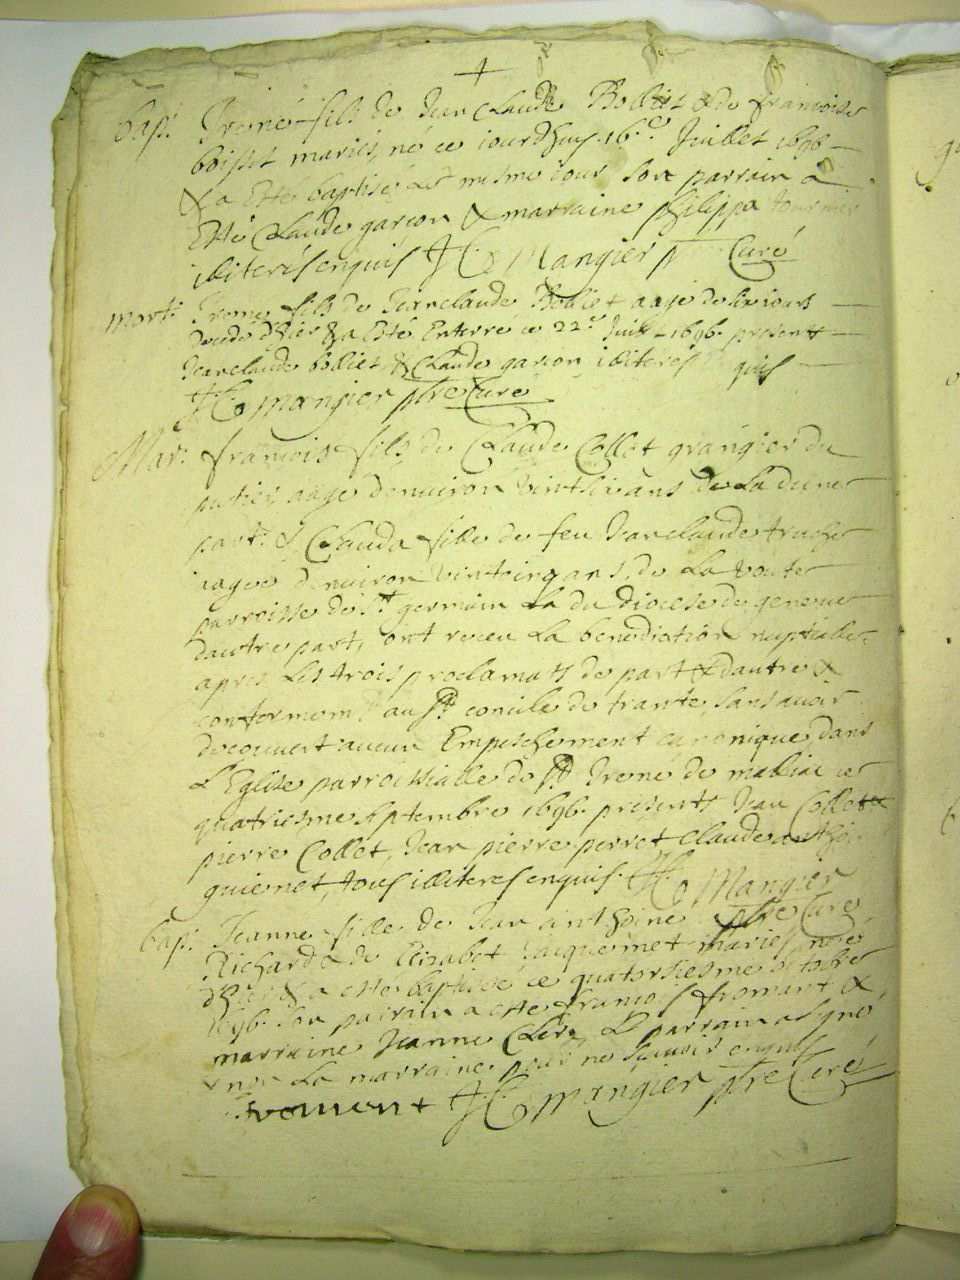 bap.t Irené fils de Jean Claude Bolliet & de francoise
boisset mariés, né ce iourdhuy 16.e Juillet 1696
& a esté baptisé le mesme iour son parrain a
Esté Claude garcon & marraine philippa fournier
illiterés enquis J C Mangier ptre Curé
mort. Irené fils de Jeanclaude Bolliet aagé de six iours
decedé d'hier & a esté Enterré ce 22.e Juill. 1696. present
Jeanclaude bolliet, & Claude garcon illiterés quis
J C mangier ptre Curé
Mar. francois fils de Claude Collet grangier du
aagé denuiron vintsix ans de La d'une
part. & Clauda fille de feu Jeanclaude truche
aagée denuiron vintcinq ans de La voute
parroisse de S.t germain La du diocese de geneue
dautre part, ont receu La benediction nuptialle
apres Les trois proclamats de part & dautre &
conformem au S.t concile de trante, sans auoir
decouuert aucun Empeschement canonique, dans
L'Eglise parroissialle de S.t Irené de malliac ce
quatriesme septembre 1696. presents Jean Collet &
pierre Collet, Jean pierre perret Claude antho.
guienet, tous illiteres enquis. J C Mangier
ptre Curé
bap. Jeanne fille de Jean anthoine
Richard & de Elizabet Jacquemet mariés, née
d'hier & a esté baptisée ce quatorsiesme octobre
1696. son parrain a esté francois fromant &
marraine Jeanne Clerc Le parrain a signé
& non La marraine pour ne sçauoir enquis
froment J C mangier ptre Curé